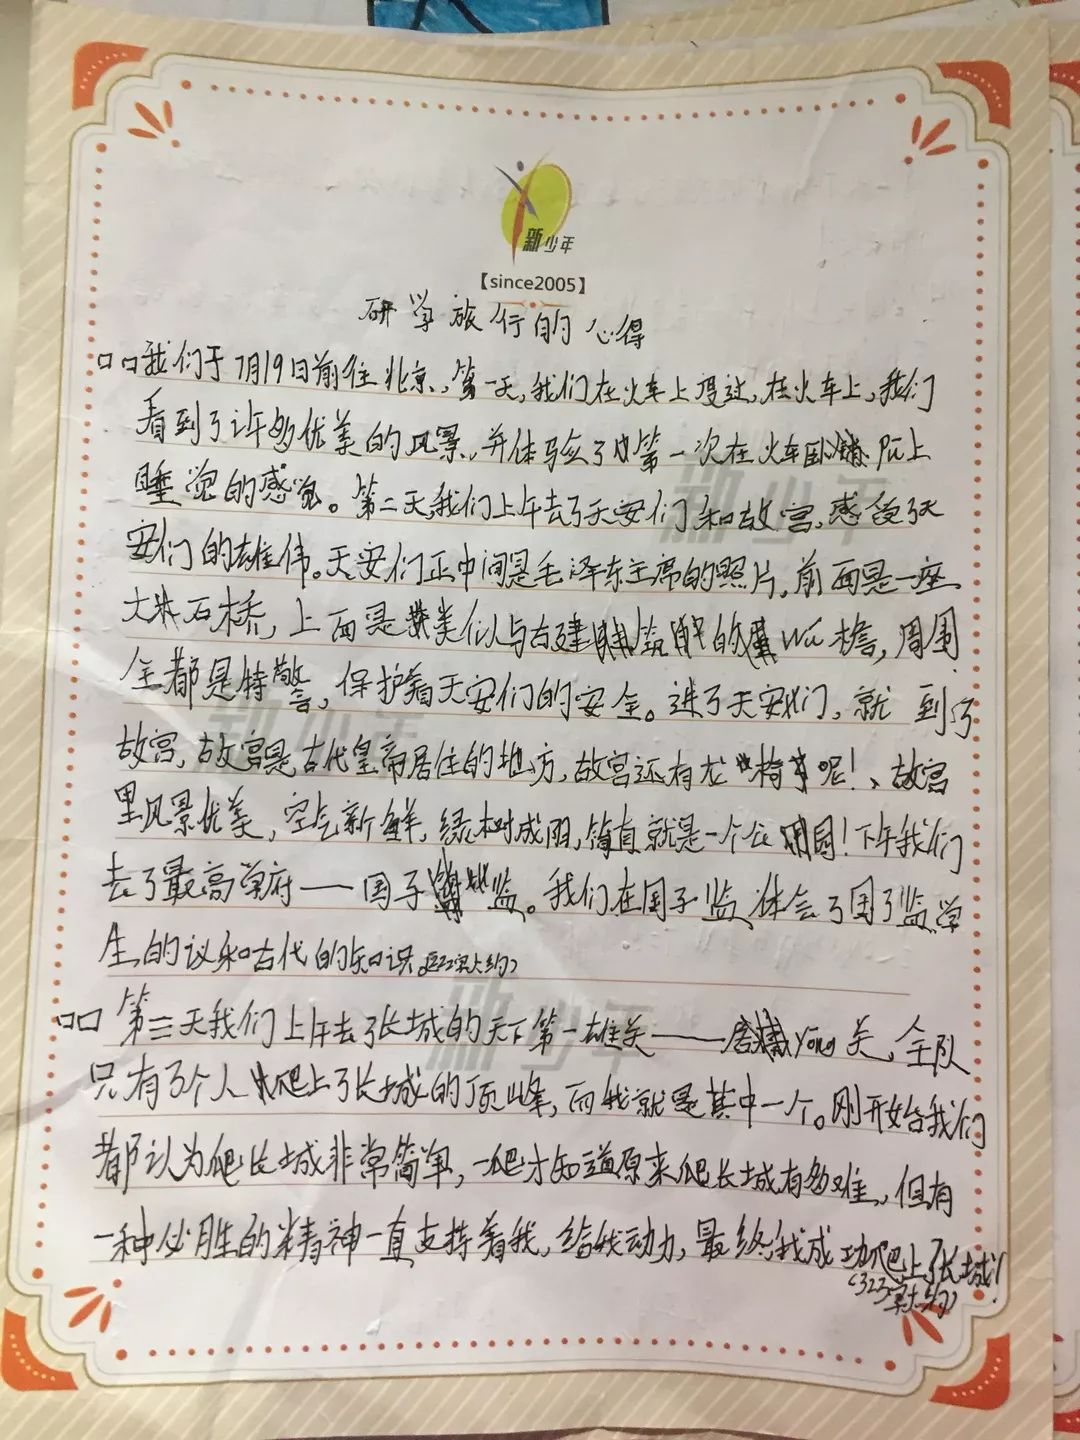 新少年
【since2005】
研学旅行的心得
我们于7月19日前往北京,第一天,我们在火车上度过,在火车上,我们
看到了许多优美的风景,并体验了第一次在火车卧铺上
睡觉的感觉。第二天,我们上午去了天安们和故宫,感受了天
安们的雄伟。天安们正中间是毛泽东主席的照片,前面是一座
大石桥,上面是类似与古建筑的wu檐,周围
全都是特警,保护着天安们的安全。进了天安门,就到了
故宫,故宫是古代皇帝居住的地方,故宫还有龙椅呢!、故宫
里风景优美,空气新鲜,绿树成阴,简直就是一个公园!下午我们
去了最高学府——国子监。我们在国子监体会了国子监学
生的议和古代的知识。
第三天我们上午去了长城的天下第一雄关——居yong关,全队
只有3个人爬上了长城的顶峰,而我就是其中一个。刚开始我们
都认为爬长城非常简单,一爬才知道原来爬长城有多难,但有
一种必胜的精神一直支持着我,给我动力,最终我成功爬上了长城!
(323字大约)